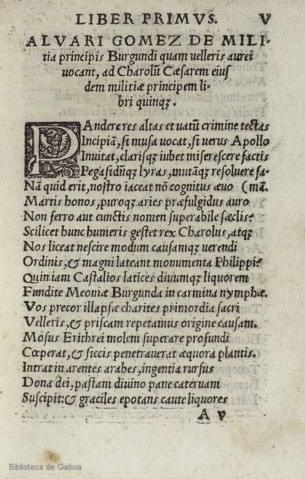 LIBER PRIMVS. V
ALVARI GOMEZ DE MILI-
tia principis Burgundi quam velleris aurei
vocant, ad Charolũ Cæsarem eius
dem militiæ principem li-
bri quinq;.
PAndere res altas et vatũ crimine tectas
Incipiã, si musa vocat, si verus Apollo
Inuitat, clarisq; iubet miserescere factis
Pegasidũq; lyras, mutãtq; resoluere fa-
Nã quid erit, nostro iaceat nõ cognitus æuo (mã.
Martis honos, puroq; aries præfulgidus auro
Non ferro aut cunctis nomen superabile sæclis?
Scilicet hunc humeris gestet rex Charolus, atq;
Nos liceat nescire modum causamq; verendi
Ordinis, & magni lateant monumenta Philippi?
Quin iam Castalios latices diuumq; liquorem
Fundite Meoniæ Burgunda in carmina nymphæ.
Vos precor illapsæ charites primordia sacri
Velleris, & priscam repetamus origine causam.
Mosus Erithrei molem superare profundi
Cœperat, & siccis penetrauerat æquora plantis.
Intrat in arentes arabes, ingentia rursus
Dona dei, pastam diuino pane cateruam
Suscipit: & graciles epotans caute liquores
A v
Biblioteca de Galicia